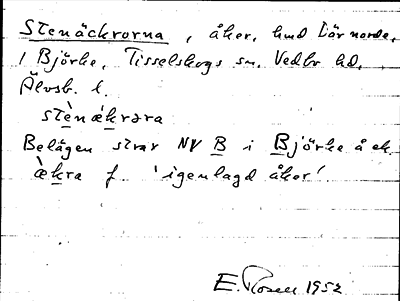 Stenäckrorna, åker, hmd Lärnorde,
i Björke, Tisselskogs sn. Vedbo hd.
Älvsb. l.
stènǽkrara
Belägen strax NV B i Björke å ek.
æ̀kra f. 'igenlagd åker'.
E. Rosell 1952